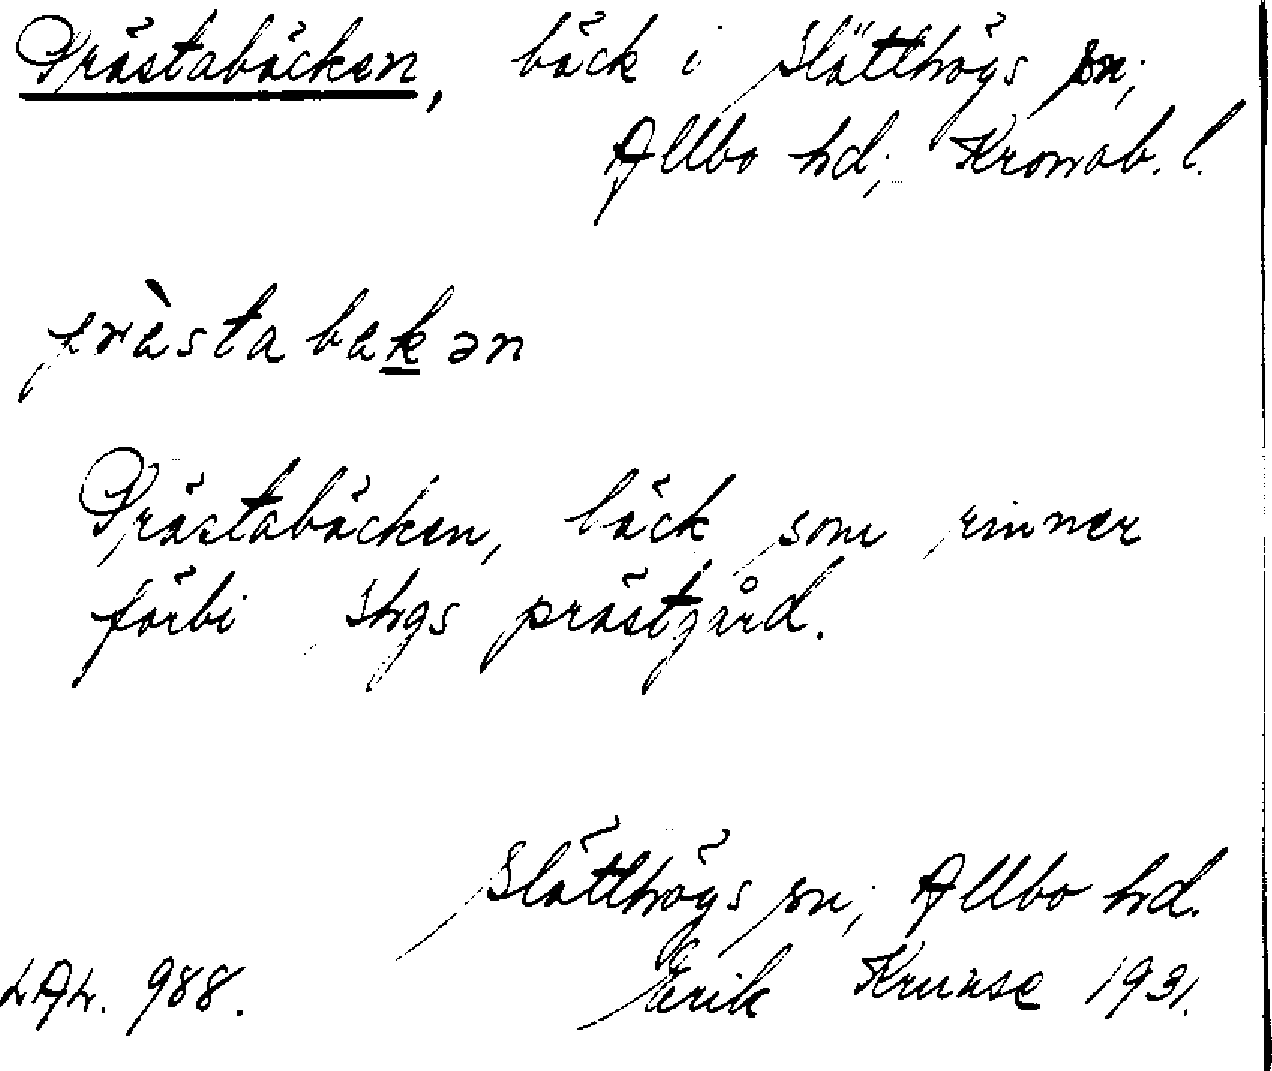 Prästabäcken, bäck i Slätthögs sn;
Allbo hd; Kronob. l.
prèstabekən
Prästabäcken, bäck som rinner
förbi Shgs prästgård.
Slätthögs sn; Allbo hd.
LAL. 988. Erik 1931.